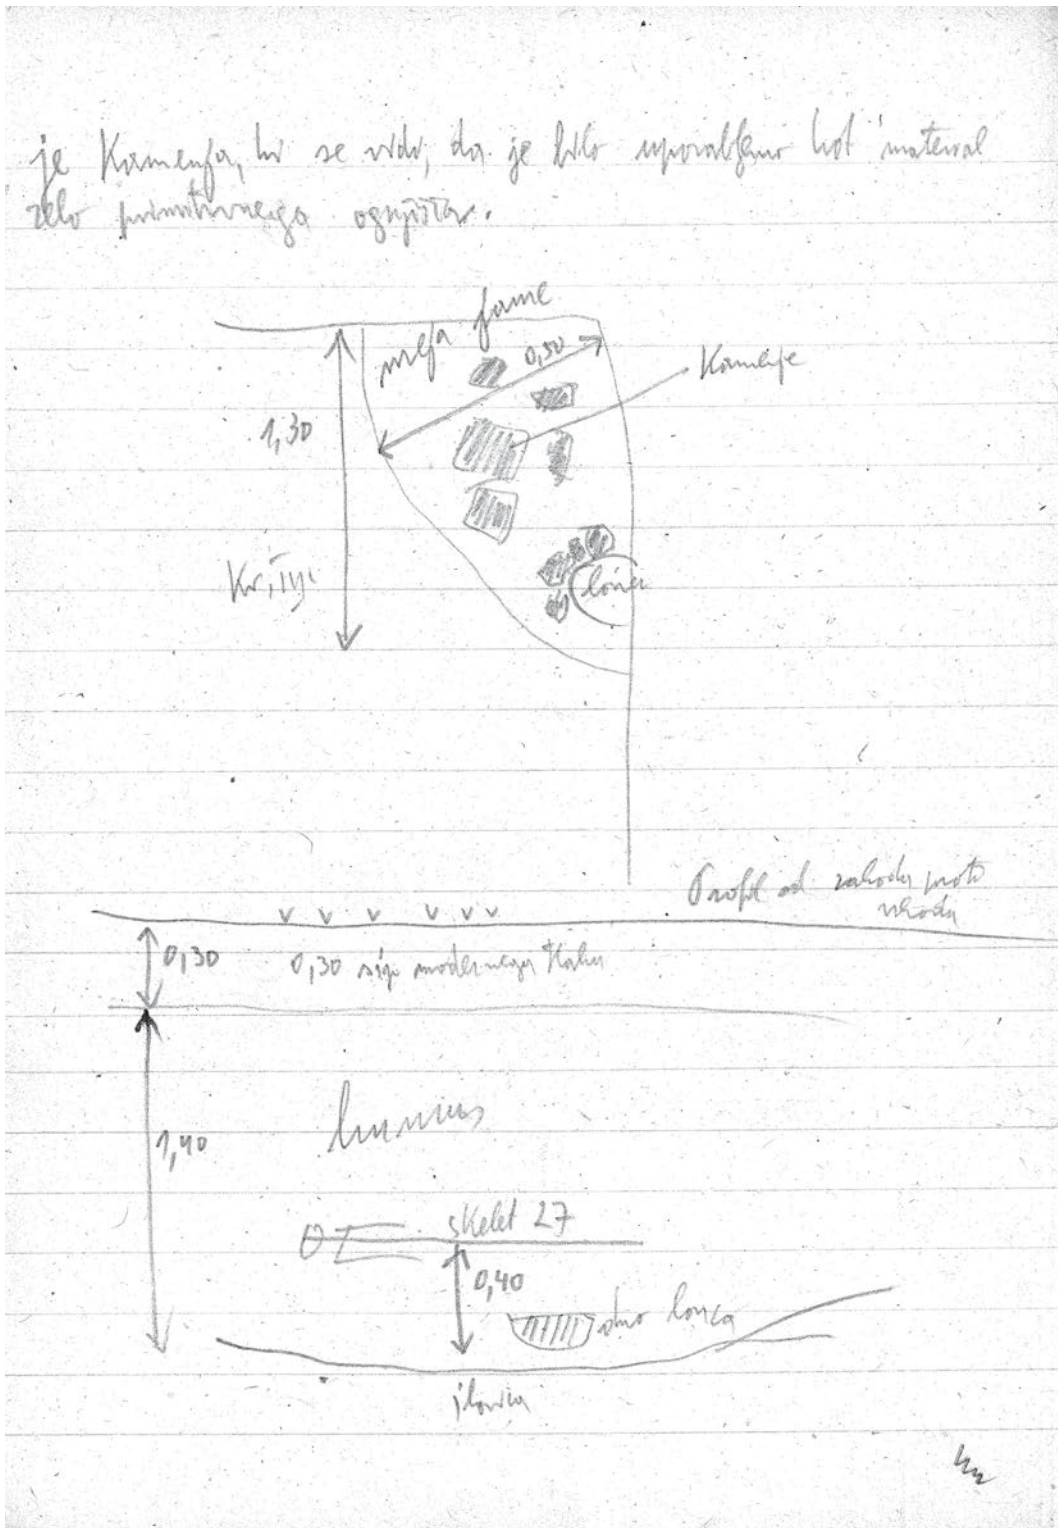 je Kamenja, ki se vidi, da je bilo uporabljeno kot material
zelo primitivnega ognjišča.
meja jame
0,50
Kamenje
1,30
lonec
Profil od zahoda proti
vzhodu
0,30
0,30 sija modernega tlaka
1,40
humus
skelet 27
0,40
dno lonca
ilovica